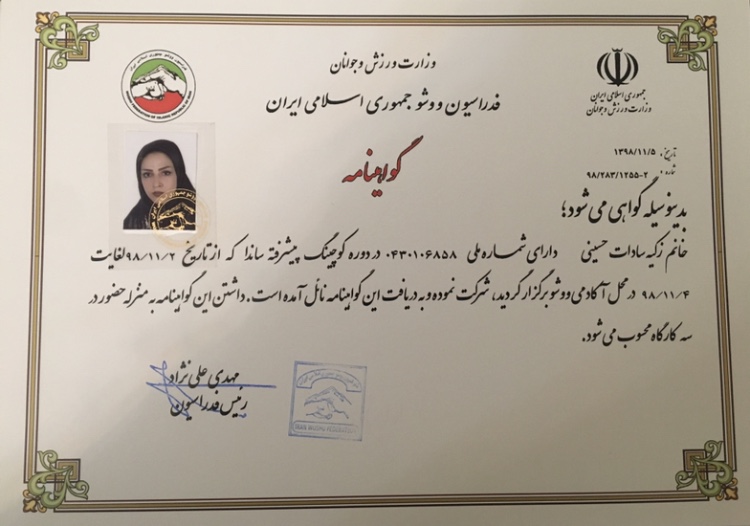 وزارت ورزش و جوانان
فدراسیون ووشو جمهوری اسلامی ایران
جمهوری اسلامی ایران
وزارت ورزش و جوانان
گواهینامه
تاریخ: ۱۳۹۸/۱۱/۵
شماره: ۹۸/۲۸۳/۱۲۵۵-۲
بدینوسیله گواهی می شود؛
خانم زکیه سادات حسینی دارای شماره ملی ۰۴۳۰۱۰۶۸۵۸ در دوره کوچینگ پیشرفته ساندا که از تاریخ ۹۸/۱۱/۲ لغایت
۹۸/۱۱/۴ در محل آکادمی ووشو برگزار گردید، شرکت نموده و به دریافت این گواهینامه نائل آمده است. داشتن این گواهینامه به منزله حضور در
سه کارگاه محسوب می شود.
مهدی علی نژاد
رئیس فدراسیون
IRAN WUSHU FEDERATION